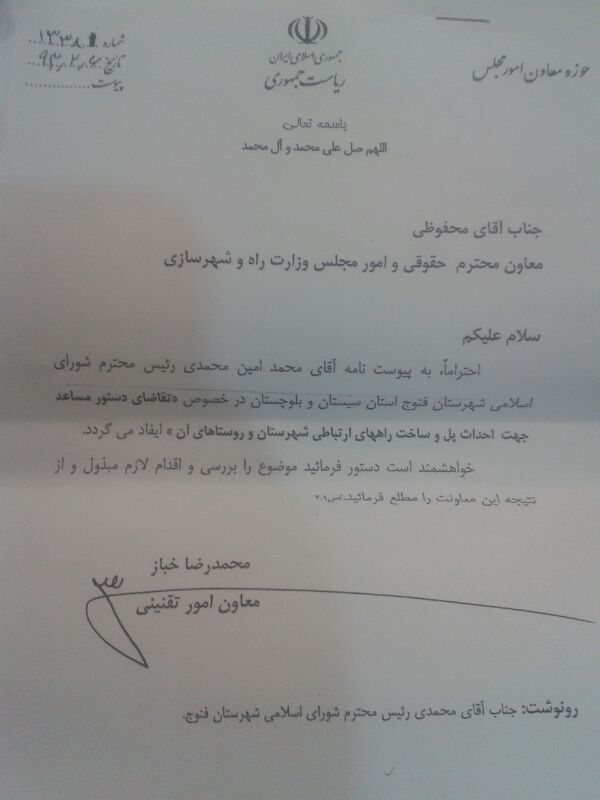 جمهوری اسلامی ایران
ریاست جمهوری
حوزه معاون امور مجلس
شماره ۱۳۳۸۱
تاریخ ۹۳.۲.۶
پیوست
باسمه تعالی
اللهم صل علی محمد و آل محمد
جناب آقای محفوظی
معاون محترم حقوقی و امور مجلس وزارت راه و شهرسازی
سلام علیکم
احتراماً، به پیوست نامه آقای محمد امین محمدی رئیس محترم شورای
اسلامی شهرستان فنوج استان سیستان و بلوچستان در خصوص «تقاضای دستور مساعد
جهت احداث پل و ساخت راههای ارتباطی شهرستان و روستاهای آن» ایفاد می گردد.
خواهشمند است دستور فرمائید موضوع را بررسی و اقدام لازم مبذول و از
نتیجه این معاونت را مطلع فرمائید.
محمدرضا خباز
معاون امور تقنینی
رونوشت: جناب آقای محمدی رئیس محترم شورای اسلامی شهرستان فنوج.